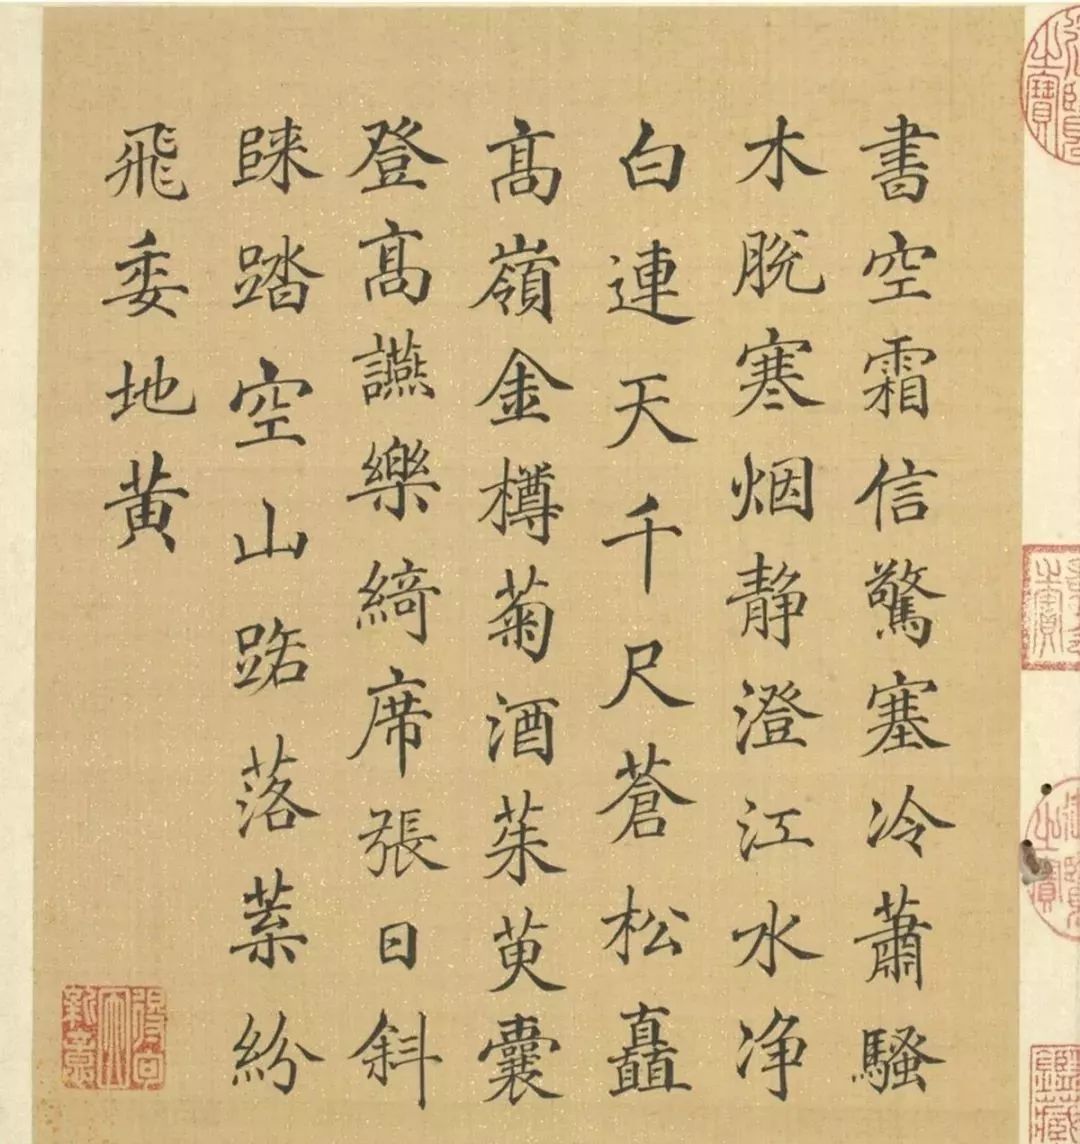 書空霜信驚塞冷蕭騷
木脫寒烟靜澄江水净
白連天千尺蒼松矗
髙嶺金樽菊酒茱萸囊
登髙讌樂綺席張日斜
踏空山路落葉紛
飛委地黃